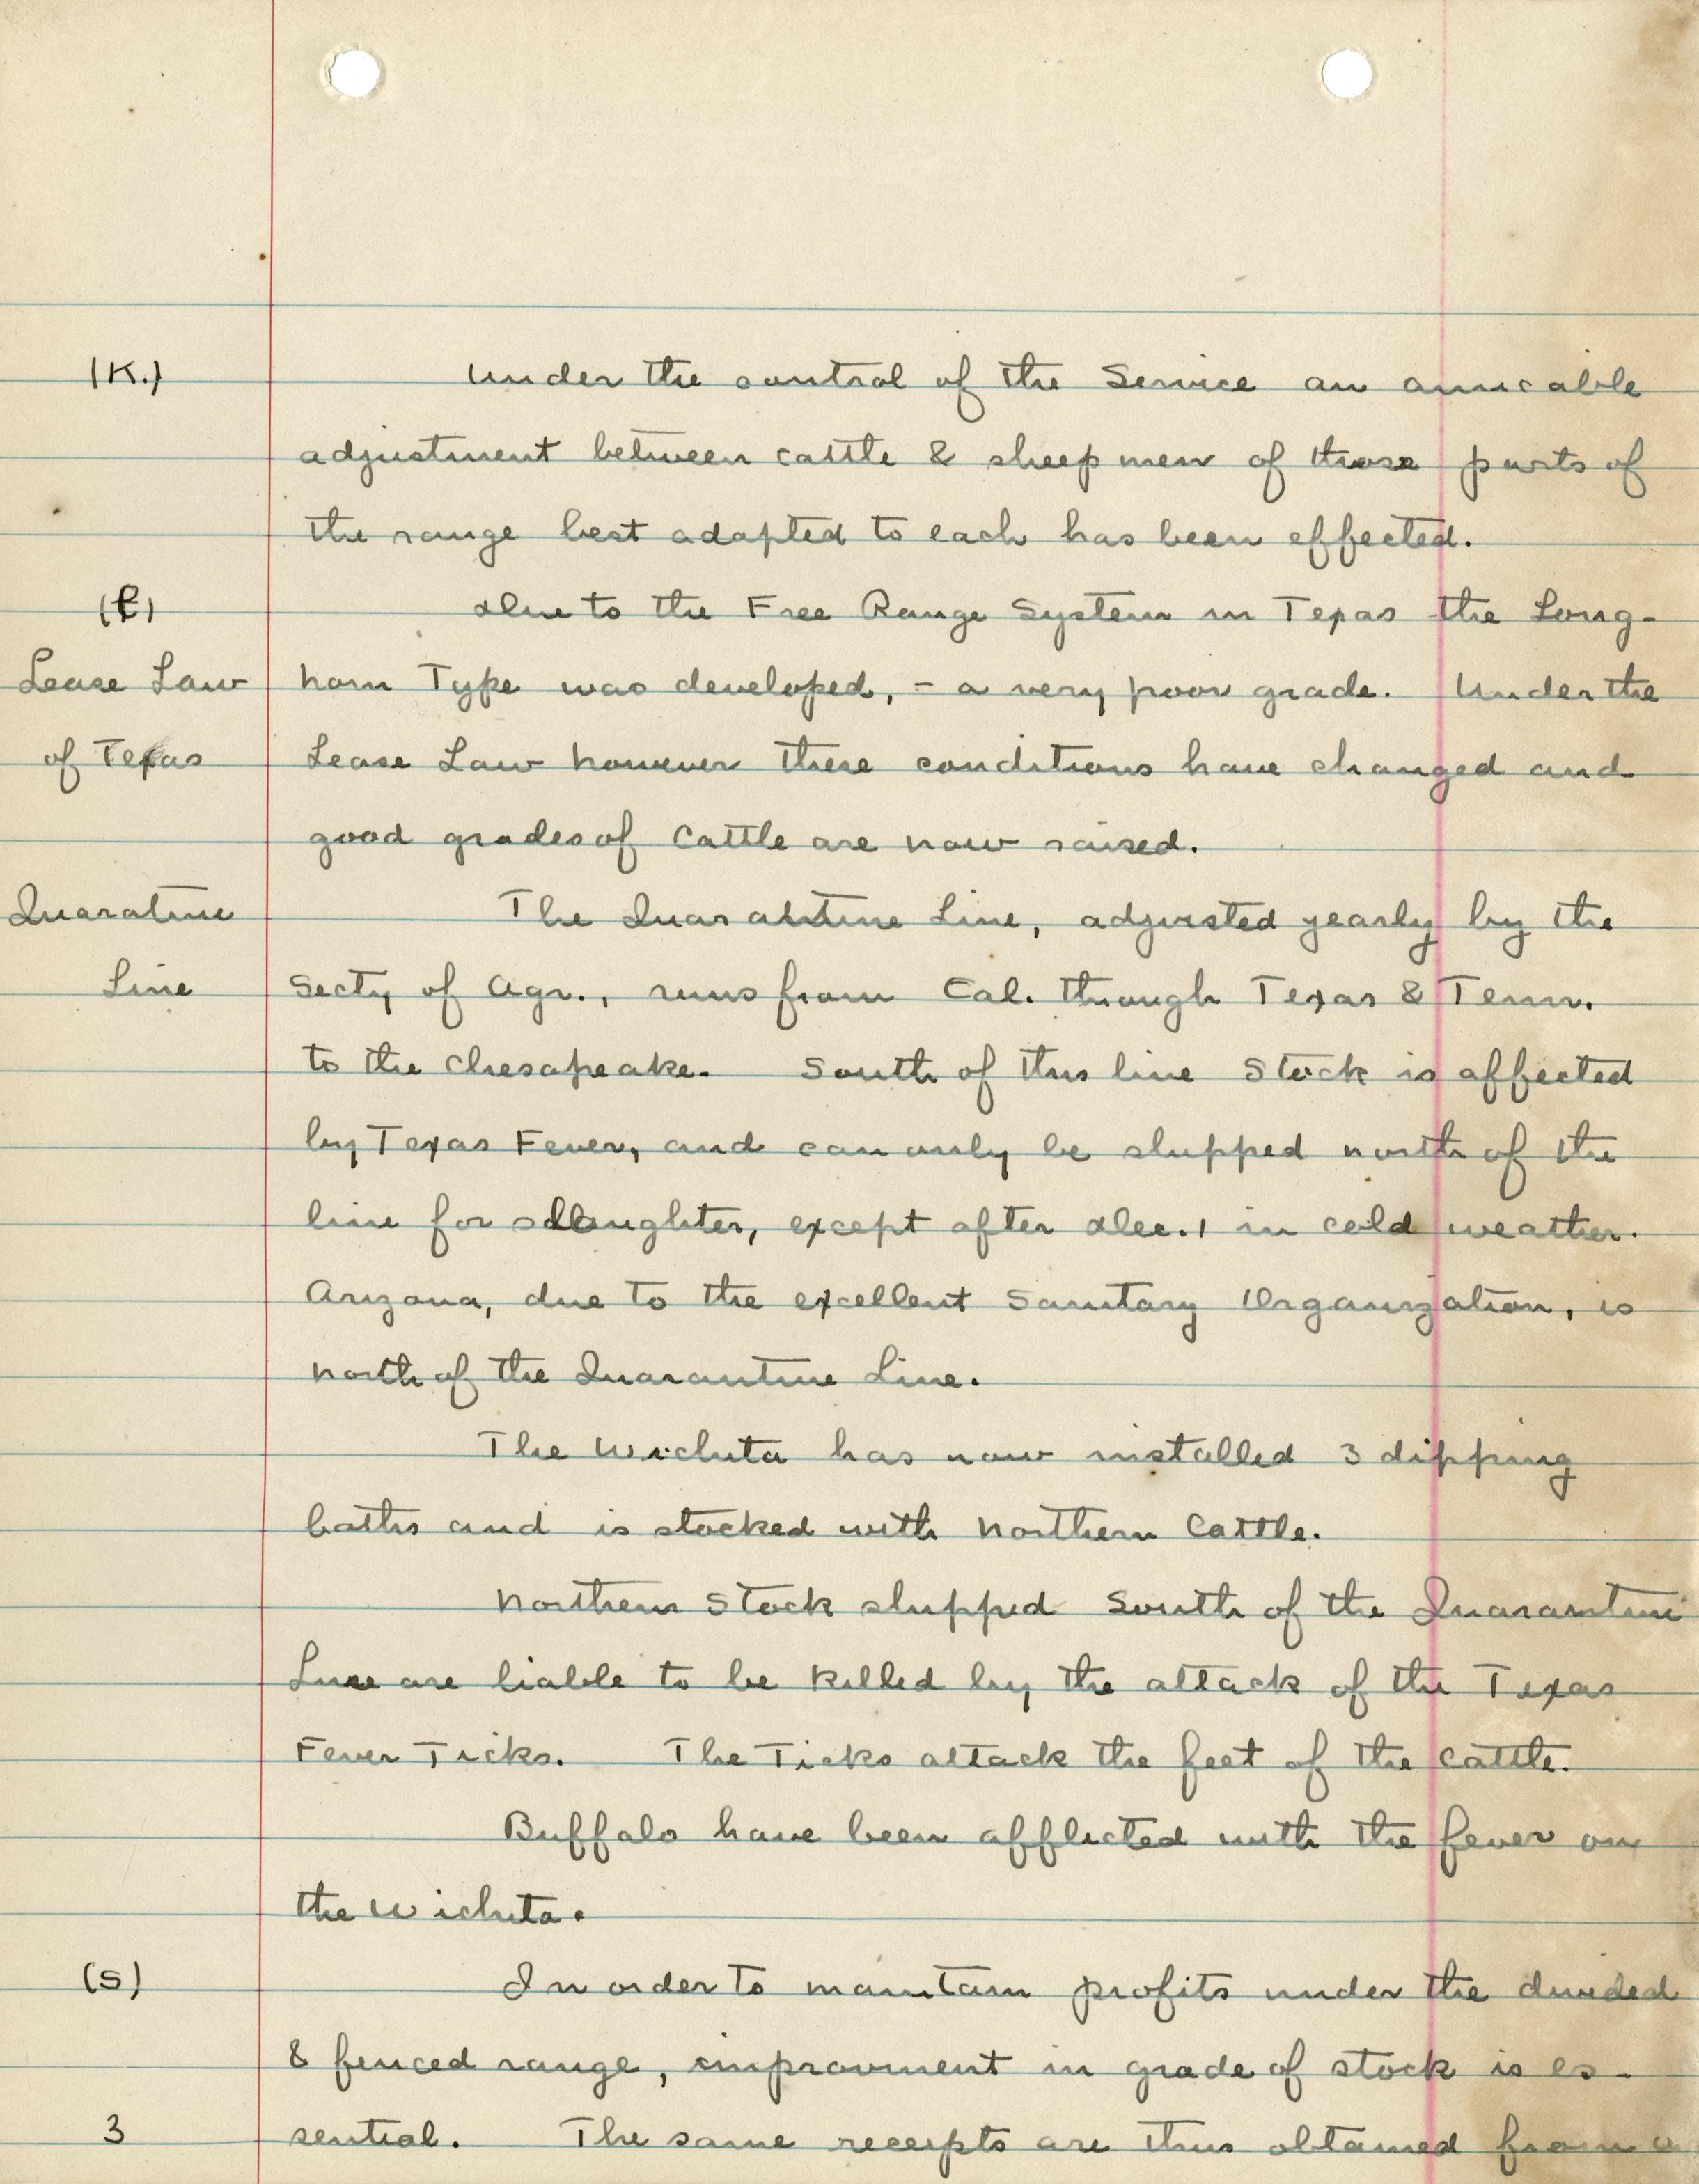 (K.) Under the control of the Service an amicable
adjustment between cattle & sheep men of those parts of
the range best adapted to each has been effected.
(l) Due to the Free Range System in Texas the Long-
Lease Law horn Type was developed, - a very poor grade. Under the
of Texas Lease Law however these conditions have changed and
good grades of Cattle are now raised.
Quaratine The Quarantine Line, adjusted yearly by the
Line Secty of Agr., runs from Cal. through Texas & Tenn.
to the Chesapeake. South of this line Stock is affected
by Texas Fever, and can only be shipped north of the
line for slaughter, except after Dec. 1 in cold weather.
Arizona, due to the excellent Sanitary Organization, is
north of the Quarantine Line.
The Wichita has now installed 3 dipping
baths and is stocked with northern Cattle.
Northern Stock shipped South of the Quarantine
Line are liable to be killed by the attack of the Texas
Fever Ticks. The Ticks attack the feet of the cattle.
Buffalo have been afflicted with the fever on
the Wichita.
(s) In order to maintain profits under the divided
& fenced range, improvment in grade of stock is es-
3 sential. The same receipts are thus obtained from a